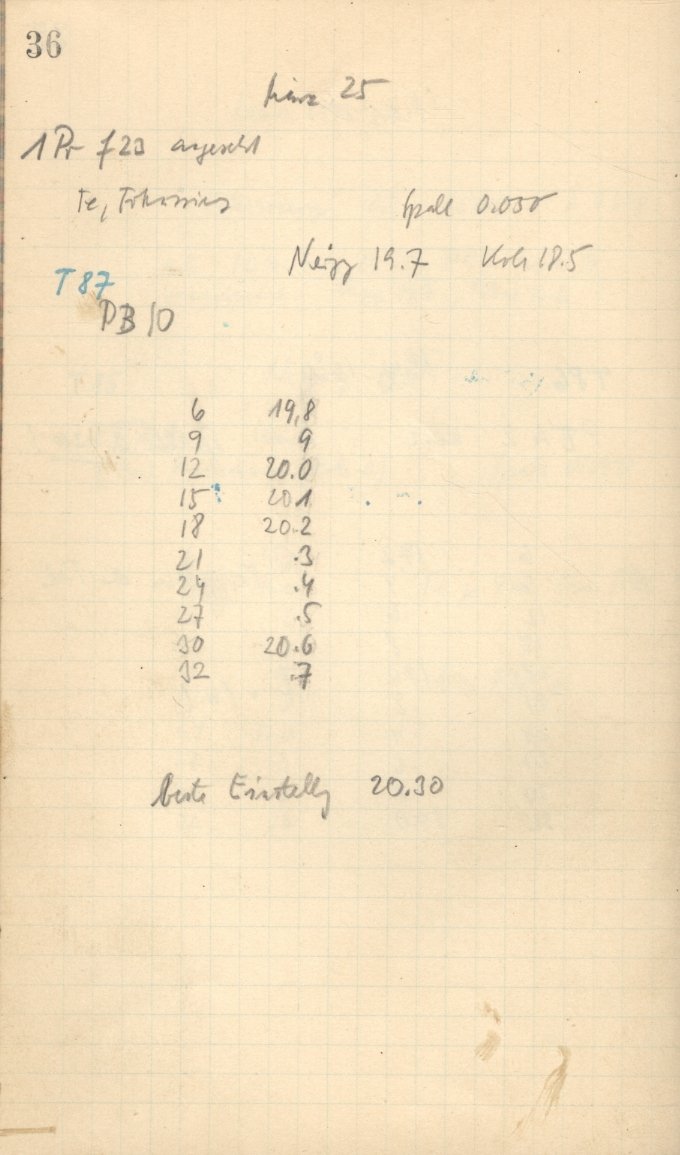 36
März 25
1 Pr f 23 angesetzt
Fe, Spalt 0.030
Neigg 19.7 Koll 18.5
T 87
PB 10
6 19,8
9 9
12 20.0
15 20.1
18 20.2
21 .3
24 .4
27 .5
30 20.6
32 .7
beste Einstellg 20.30